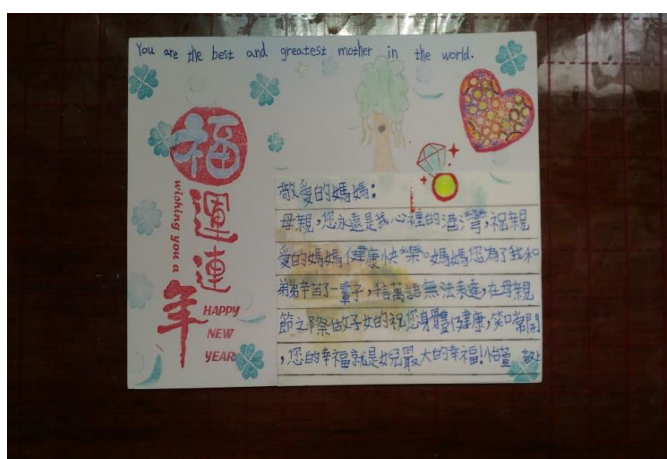 You are the best and greatest mother in the world.
福
運連年
wishing you a
HAPPY
NEW
YEAR
敬愛的媽媽：
母親，您永遠是我心裡的港灣，祝親
愛的媽媽健康快樂。媽媽您為了我和
弟弟辛苦了一輩子，千言萬語無法表達，在母親
節之際做子女的祝您身體健康，笑口常開
，您的幸福就是女兒最大的幸福！怡萱 敬上